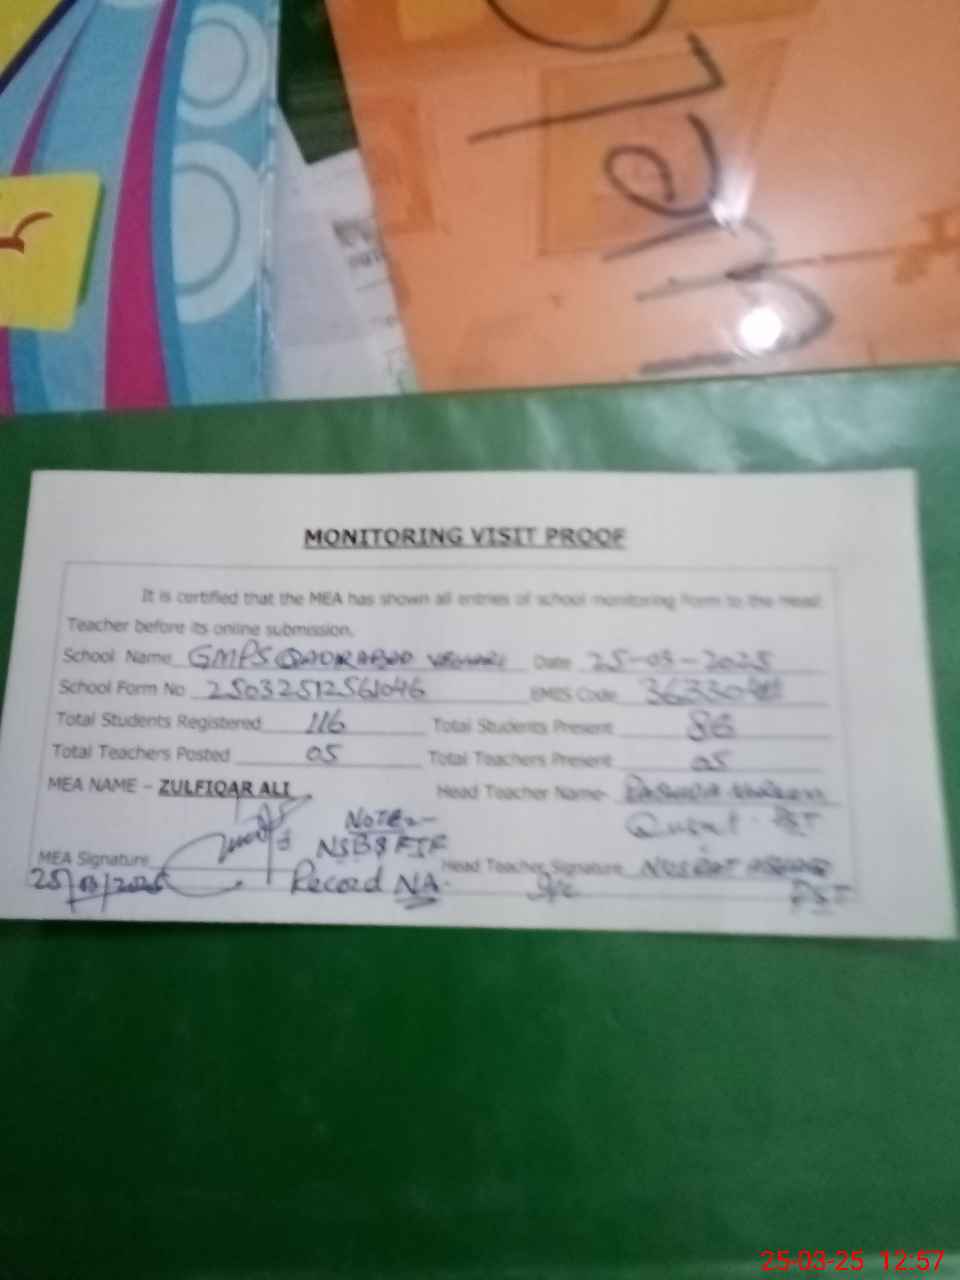 MONITORING VISIT PROOF
It is certified that the MEA has shown all entries of school monitoring Form to the Head
Teacher before its online submission.
School Name GMPS QADRABAD VEHARI Date 25-03-2025
School Form No 25032512561046 EMIS Code
Total Students Registered 116 Total Students Present 86
Total Teachers Posted 05 Total Teachers Present 05
MEA NAME – ZULFIQAR ALI Head Teacher Name-
NOTE:- PST
NSB & FTF
MEA Signature Head Teacher Signature NUSRAT
25/03/2025 Record NA. I/C PST
25-03-25 12:57